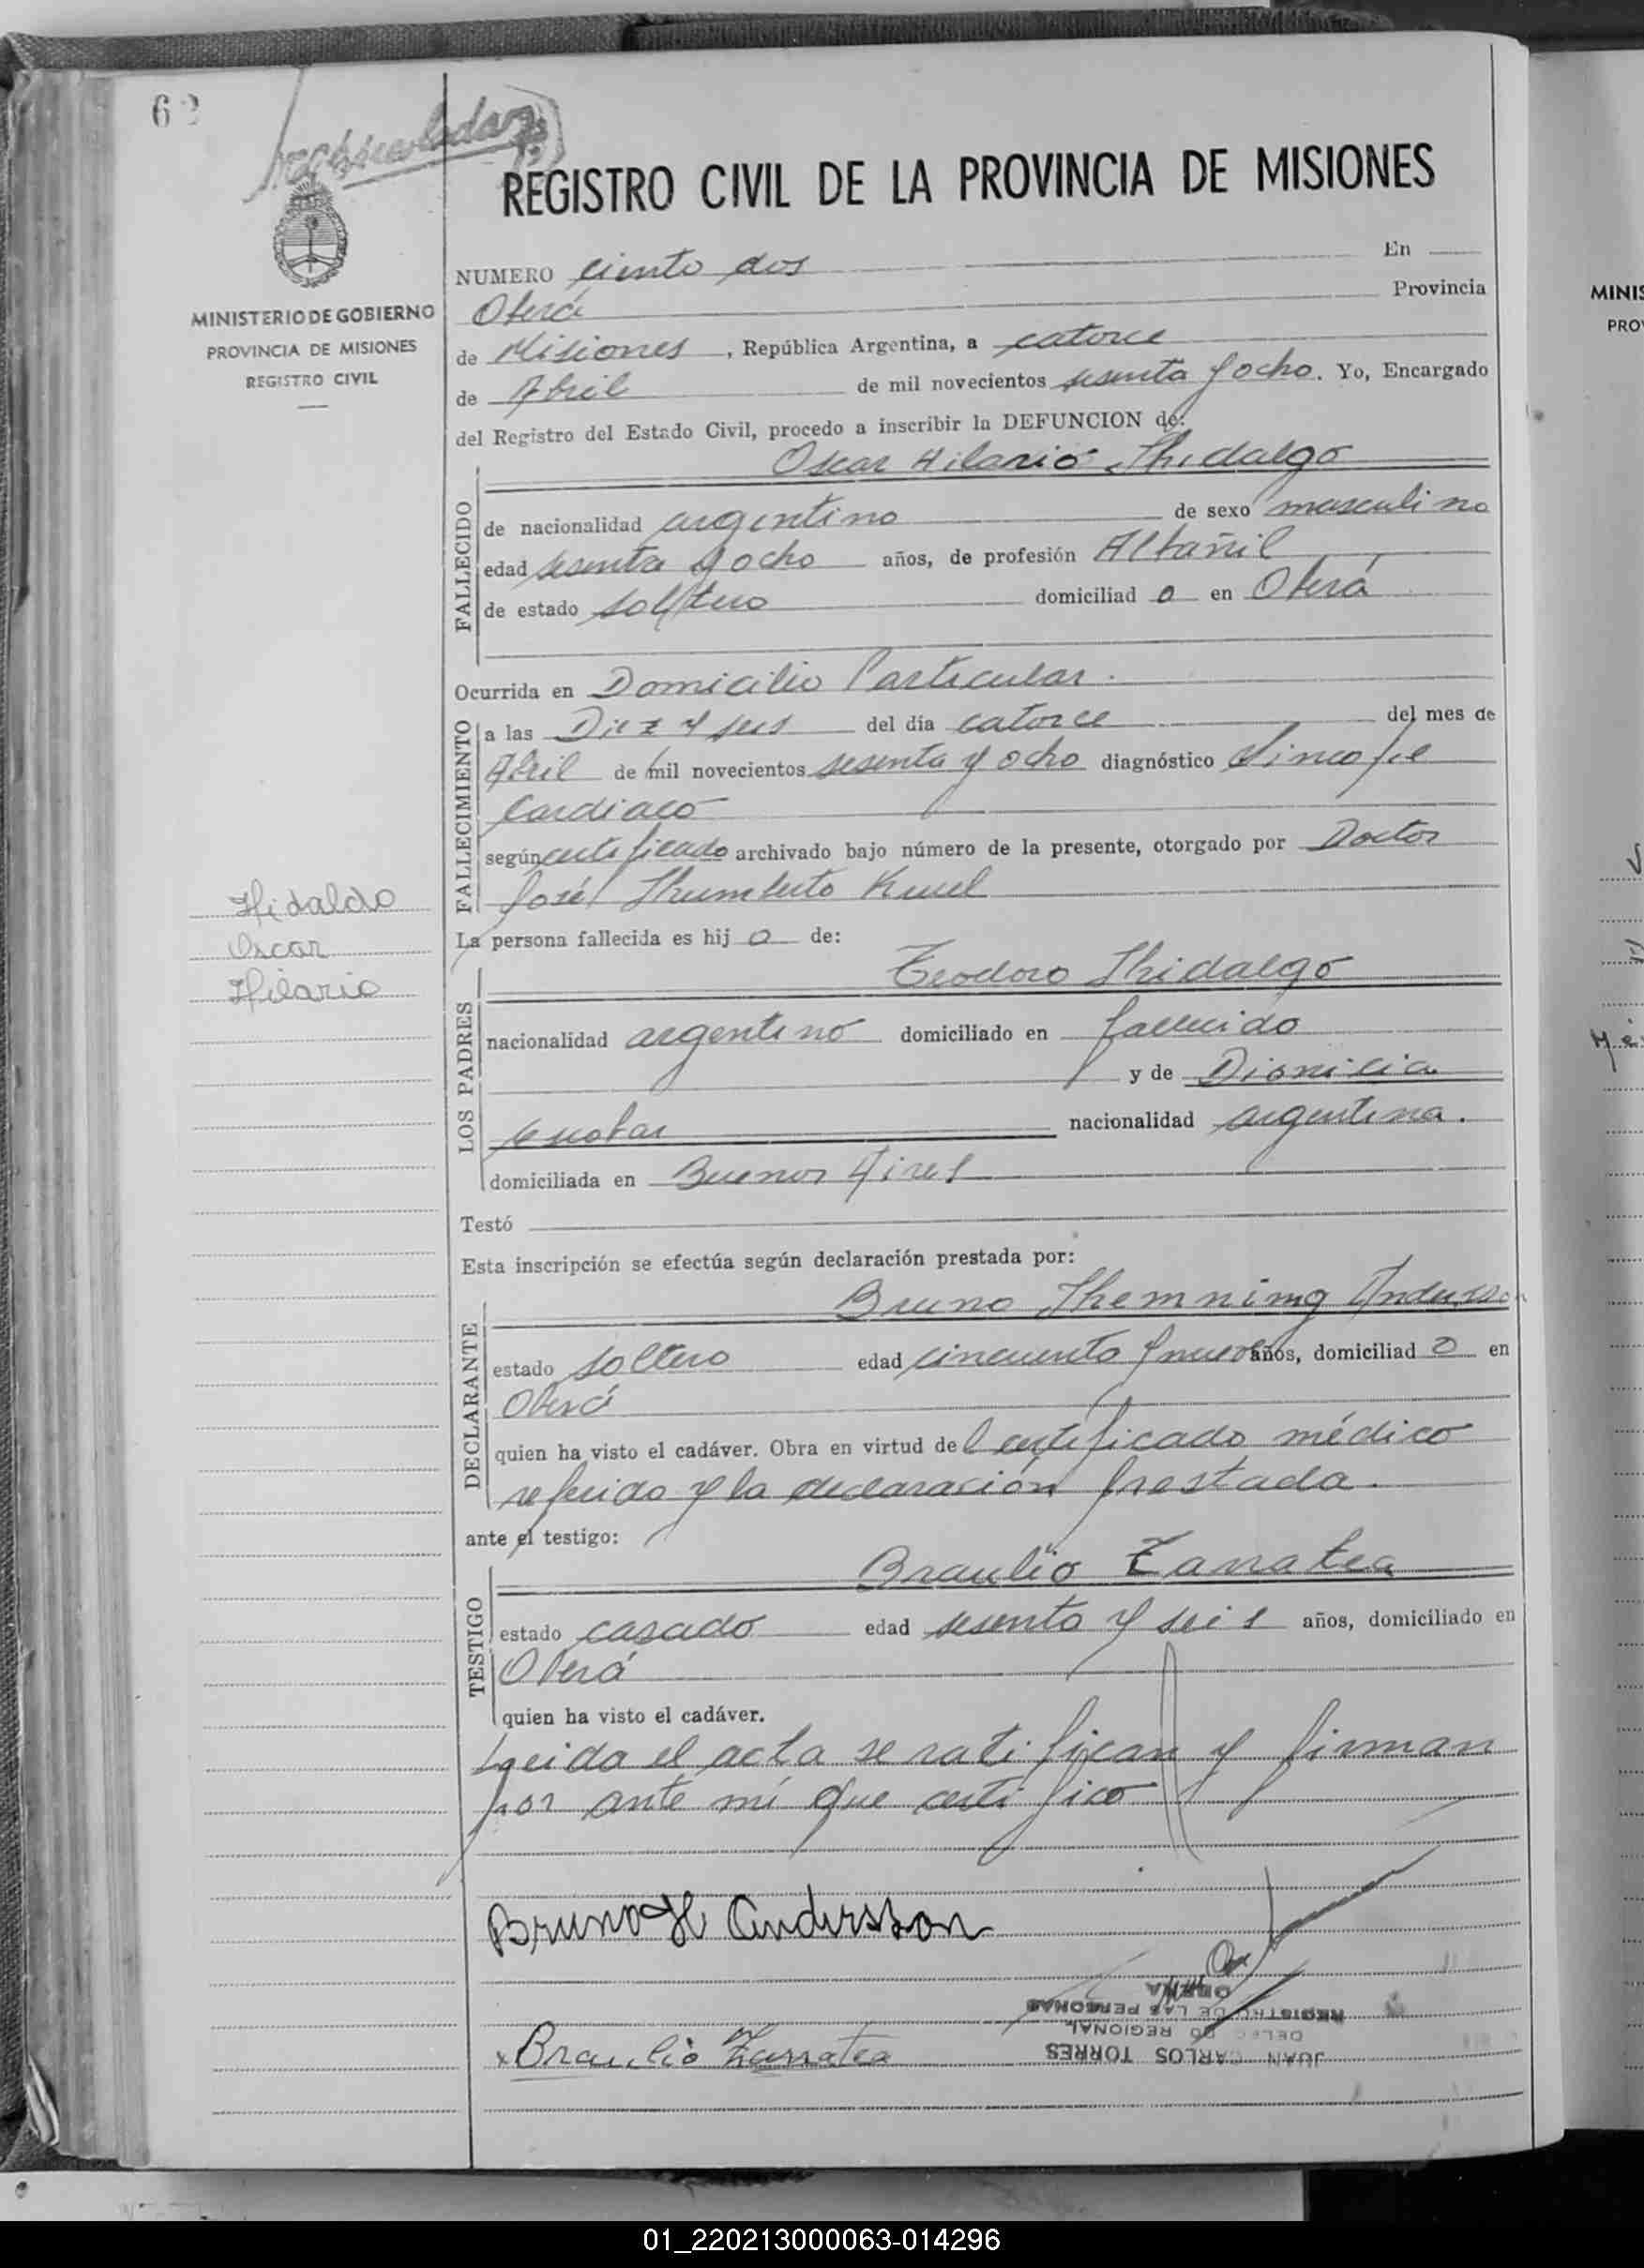 62
REGISTRO CIVIL DE LA PROVINCIA DE MISIONES
MINISTERIO DE GOBIERNO
PROVINCIA DE MISIONES
REGISTRO CIVIL
NUMERO Ciento dos En
Oberá Provincia
de Misiones, República Argentina, a catorce
de Abril de mil novecientos sesenta y ocho. Yo, Encargado
del Registro del Estado Civil, procedo a inscribir la DEFUNCION de:
Oscar Hilario Hidalgo
FALLECIDO
de nacionalidad argentino de sexo masculino
edad sesenta y ocho años, de profesión Albañil
de estado soltero domiciliad o en Oberá
Ocurrida en Domicilio Particular.
FALLECIMIENTO
a las Diez y seis del día catorce del mes de
Abril de mil novecientos sesenta y ocho diagnóstico Sincope
Cardiaco
según certificado archivado bajo número de la presente, otorgado por Doctor
José Humberto
Hidalgo
Oscar
Hilario
La persona fallecida es hij o de:
LOS PADRES
Teodoro Hidalgo
nacionalidad argentino domiciliado en fallecido
y de Dionicia
Escobar nacionalidad argentina.
domiciliada en Buenos Aires
Testó
Esta inscripción se efectúa según declaración prestada por:
DECLARANTE
Bruno Hemning Andersson
estado soltero edad cincuenta y nueve años, domiciliad o en
Oberá
quien ha visto el cadáver. Obra en virtud del certificado médico
referido y la declaración prestada.
ante el testigo:
TESTIGO
Braulio Zarratea
estado casado edad sesenta y seis años, domiciliado en
Oberá
quien ha visto el cadáver.
Leida el acta se ratifican y firman
por ante mí que certifico
Bruno H Andersson
Braulio Zarratea
OBERA
REGISTRO DE LAS PERSONAS
DELEGADO REGIONAL
JUAN CARLOS TORRES
MINIS
PRO
01_220213000063-014296